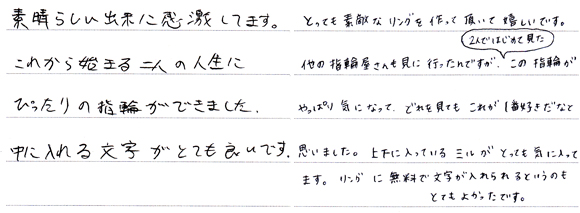 素晴らしい出来に感激してます。
これから始まる二人の人生に
ぴったりの指輪ができました。
中に入れる文字がとても良いです。
とっても素敵なリングを作って頂いて嬉しいです。
2人ではじめて見た
他の指輪屋さんも見に行ったんですが、この指輪が
やっぱり気になって、どれを見てもこれが1番好きだなと
思いました。上下に入っているミルがとっても気に入って
ます。リングに無料で文字が入れられるというのも
とてもよかったです。